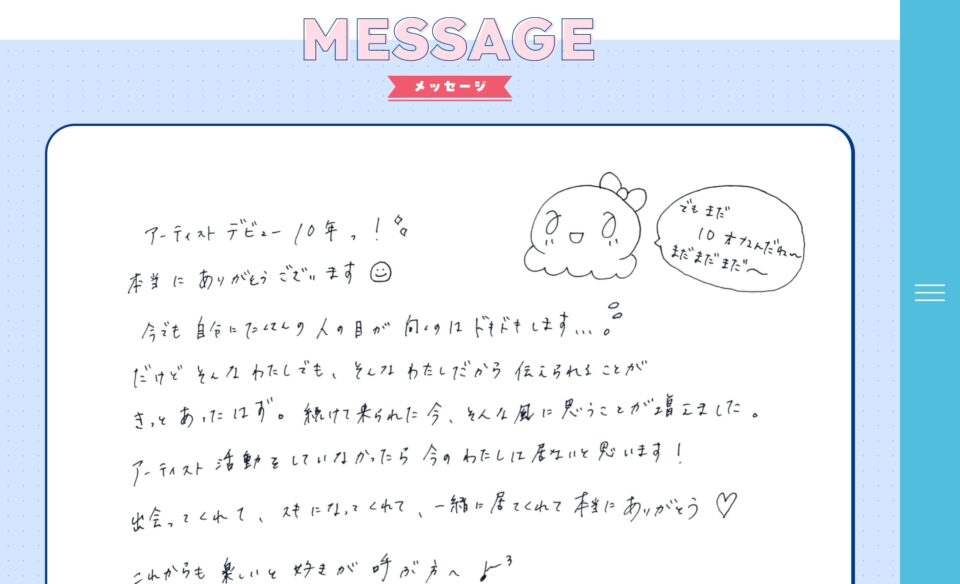 MESSAGE
メッセージ
アーティストデビュー10年っ!
本当にありがとうございます
でもまだ
10才なんだね〜
まだまだまだ〜
今でも自分にたくさんの人の目が向くのはドキドキします...
だけどそんなわたしでも、そんなわたしだから伝えられることが
きっとあったはず。続けて来られた今、そんな風に思うことが増えました。
アーティスト活動をしていなかったら今のわたしは居ないと思います!
出会ってくれて、スキになってくれて、一緒に居てくれて本当にありがとう♡
これからも楽しいと好きが呼ぶ方へ♪